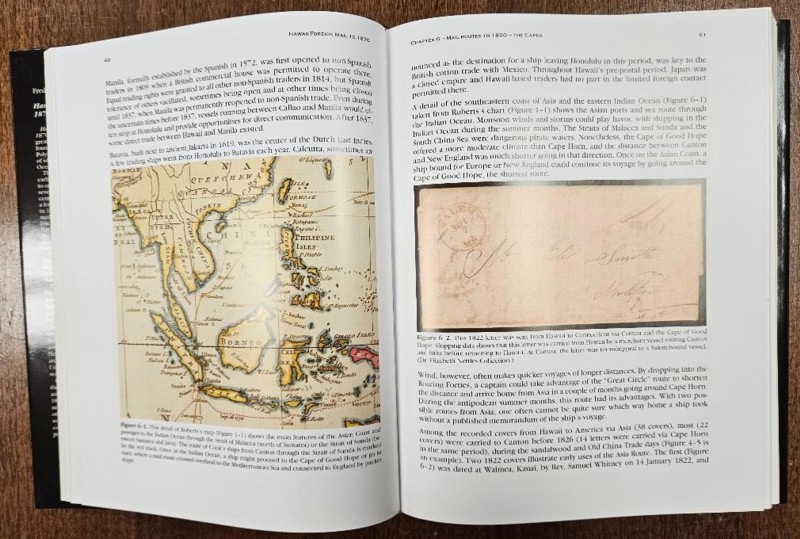 60
HAWAII FOREIGN MAIL TO 1870
Manila, formally established by the Spanish in 1572, was first opened to non-Spanish
traders in 1809 when a British commercial house was permitted to operate there.
Equal trading rights were granted to all other non-Spanish traders in 1814, but Spanish
tolerance of others vacillated, sometimes being open and at other times being closed
until 1837, when Manila was permanently reopened to non-Spanish trade. Even during
the uncertain times before 1837, vessels running between Callao and Manila would of-
ten stop at Honolulu and provide opportunities for direct communication. After 1837,
some direct trade between Hawaii and Manila existed.
Batavia, built next to ancient Jakarta in 1619, was the center of the Dutch East Indies.
A few trading ships went from Honolulu to Batavia each year. Calcutta, sometimes an
QUEYCHEW
CANTON
FORMOSA
CHINA
PHILIPINE
ISLES
BORNEO
Figure 6-1. This detail of Roberts's map (Figure 1-1) shows the main features of the Asian Coast and
passages to the Indian Ocean through the Strait of Malacca (north of Sumatra) or the Strait of Sunda (be-
tween Sumatra and Java). The route of Cook's ships from Canton through the Strait of Sunda is marked
by the red track. Once in the Indian Ocean, a ship might proceed to the Cape of Good Hope or go to
Suez, where a mail route crossed overland to the Mediterranean Sea and connected to England by packet
ships.
CHAPTER 6 – MAIL ROUTES TO 1850 – THE CAPES
61
nounced as the destination for a ship leaving Honolulu in this period, was key to the
British cotton trade with Mexico. Throughout Hawaii's pre-postal period, Japan was
a closed empire and Hawaii based traders had no part in the limited foreign contact
permitted there.
A detail of the southeastern coast of Asia and the eastern Indian Ocean (Figure 6-1)
taken from Roberts's chart (Figure 1-1) shows the Asian ports and sea route through
the Indian Ocean. Monsoon winds and storms could play havoc with shipping in the
Indian Ocean during the summer months. The Straits of Malacca and Sunda and the
South China Sea were dangerous pirate waters. Nonetheless, the Cape of Good Hope
offered a more moderate climate than Cape Horn, and the distance between Canton
and New England was much shorter going in that direction. Once on the Asian Coast, a
ship bound for Europe or New England could continue its voyage by going around the
Cape of Good Hope, the shortest route.
Smith
Figure 6-2. This 1822 letter was sent from Hawaii to Connecticut via Canton and the Cape of Good
Hope. Shipping data shows that this letter was carried from Hawaii by a merchant vessel visiting Canton
and Sitka before returning to Hawaii. At Canton, the letter was transshipped to a Salem-bound vessel.
(Dr. Elizabeth Nettles Collection.)
Wind, however, often makes quicker voyages of longer distances. By dropping into the
Roaring Forties, a captain could take advantage of the "Great Circle" route to shorten
the distance and arrive home from Asia in a couple of months going around Cape Horn.
During the antipodean summer months, this route had its advantages. With two pos-
sible routes from Asia, one often cannot be quite sure which way home a ship took
without a published memorandum of the ship's voyage.
Among the recorded covers from Hawaii to America via Asia (38 covers), most (22
covers) were carried to Canton before 1826 (14 letters were carried via Cape Horn
in the same period), during the sandalwood and Old China Trade days (Figure 4-5 is
an example). Two 1822 covers illustrate early uses of the Asia Route. The first (Figure
6-2) was dated at Waimea, Kauai, by Rev. Samuel Whitney on 14 January 1822, and